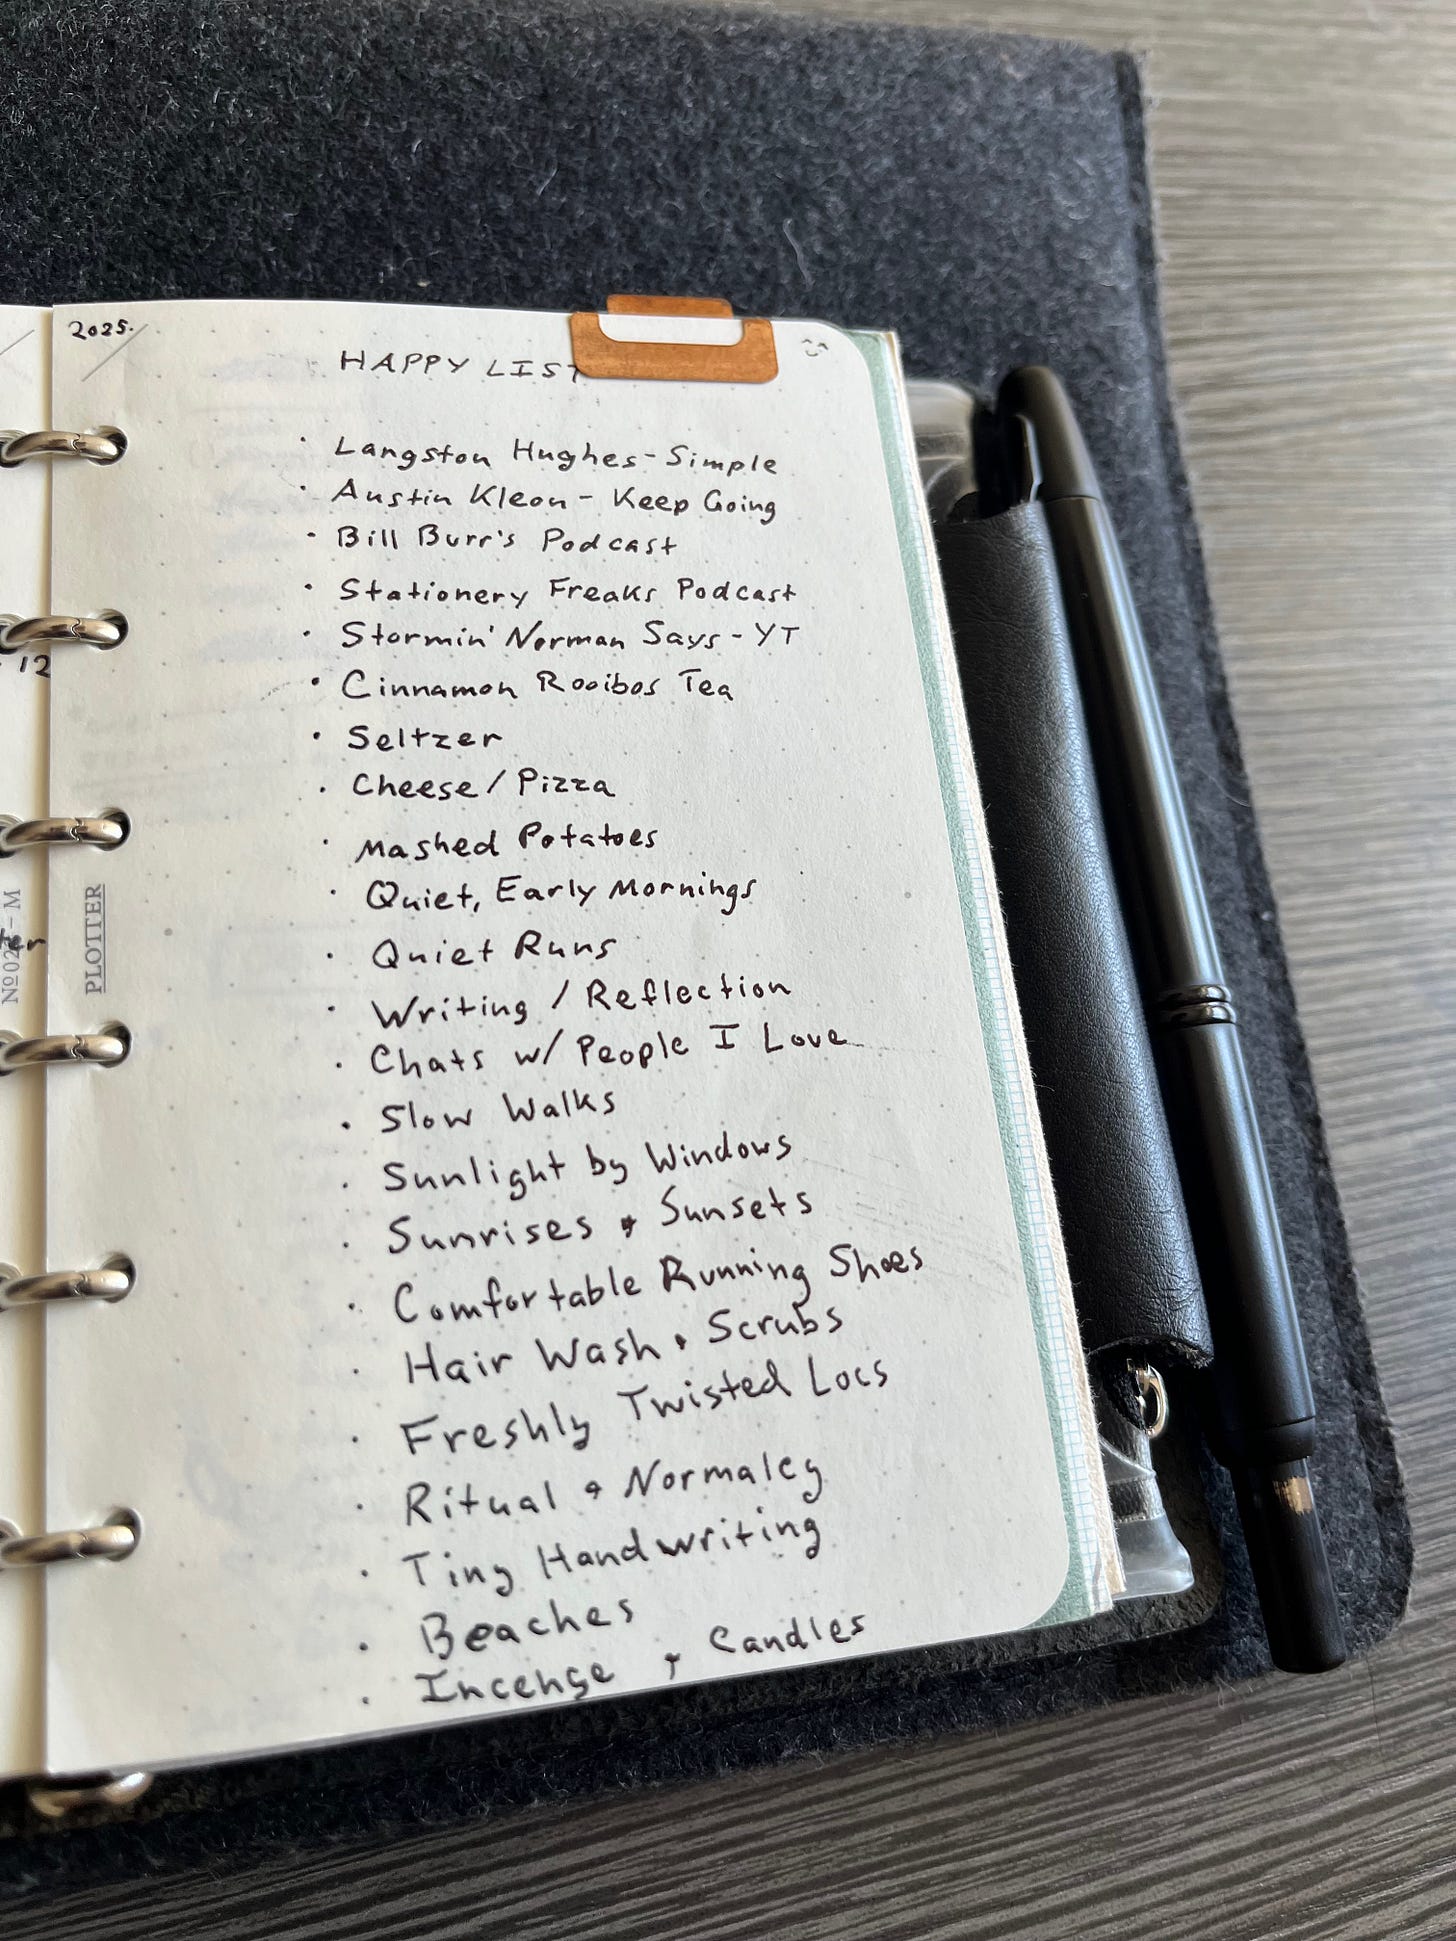 2025.
HAPPY LIST
· Langston Hughes - Simple
· Austin Kleon - Keep Going
· Bill Burr's Podcast
· Stationery Freaks Podcast
· Stormin' Norman Says - YT
· Cinnamon Rooibos Tea
· Seltzer
· Cheese / Pizza
· Mashed Potatoes
· Quiet, Early Mornings
· Quiet Runs
· Writing / Reflection
· Chats w/ People I Love
· Slow Walks
· Sunlight by Windows
· Sunrises + Sunsets
· Comfortable Running Shoes
· Hair Wash + Scrubs
· Freshly Twisted Locs
· Ritual + Normalcy
· Tiny Handwriting
· Beaches
· Incense + Candles
PLOTTER
12